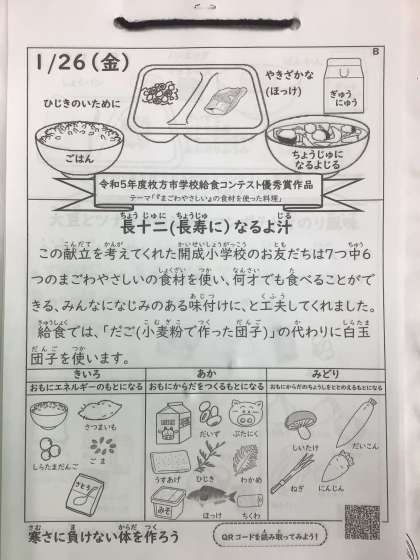 1/26(金)
B
ひじきのいために
やきざかな
(ほっけ)
ぎゅう
にゅう
ごはん
ちょうじゅに
なるよじる
令和5年度枚方市学校給食コンテスト優秀賞作品
テーマ「『まごわやさしい』の食材を使った料理」
長十二(長寿に)なるよ汁
この献立を考えてくれた開成小学校のお友だちは7つ中6
つのまごわやさしいの食材を使い、なんさいでも食べることがで
きる、みんなになじみのある味付けに、と工夫してくれました。
給食では、「だご(小麦粉で作った団子)」の代わりに白玉
団子を使います。
きいろ
あか
みどり
おもにエネルギーのもとになる
おもにからだをつくるもとになる
おもにからだのちょうしをととのえるもとになる
さつまいも
しらたまだんご
ごま
さとう
だいず
ぶたにく
うすあげ
ひじき
わかめ
みそ
ほっけ
ちくわ
しいたけ
だいこん
ねぎ
にんじん
寒さに負けない体を作ろう
QRコードを読み取ってみよう!